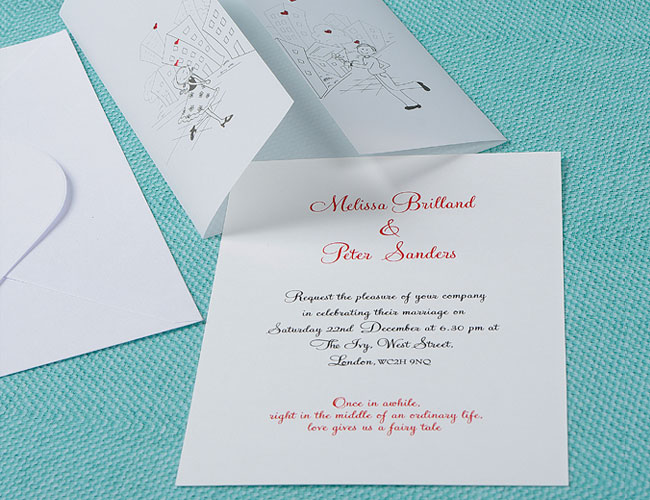 Melissa Brilland
&
Peter Sanders
Request the pleasure of your company
in celebrating their marriage on
Saturday 22nd December at 6.30 pm at
The Ivy, West Street,
London, WC2H 9NQ
Once in awhile,
right in the middle of an ordinary life,
love gives us a fairy tale